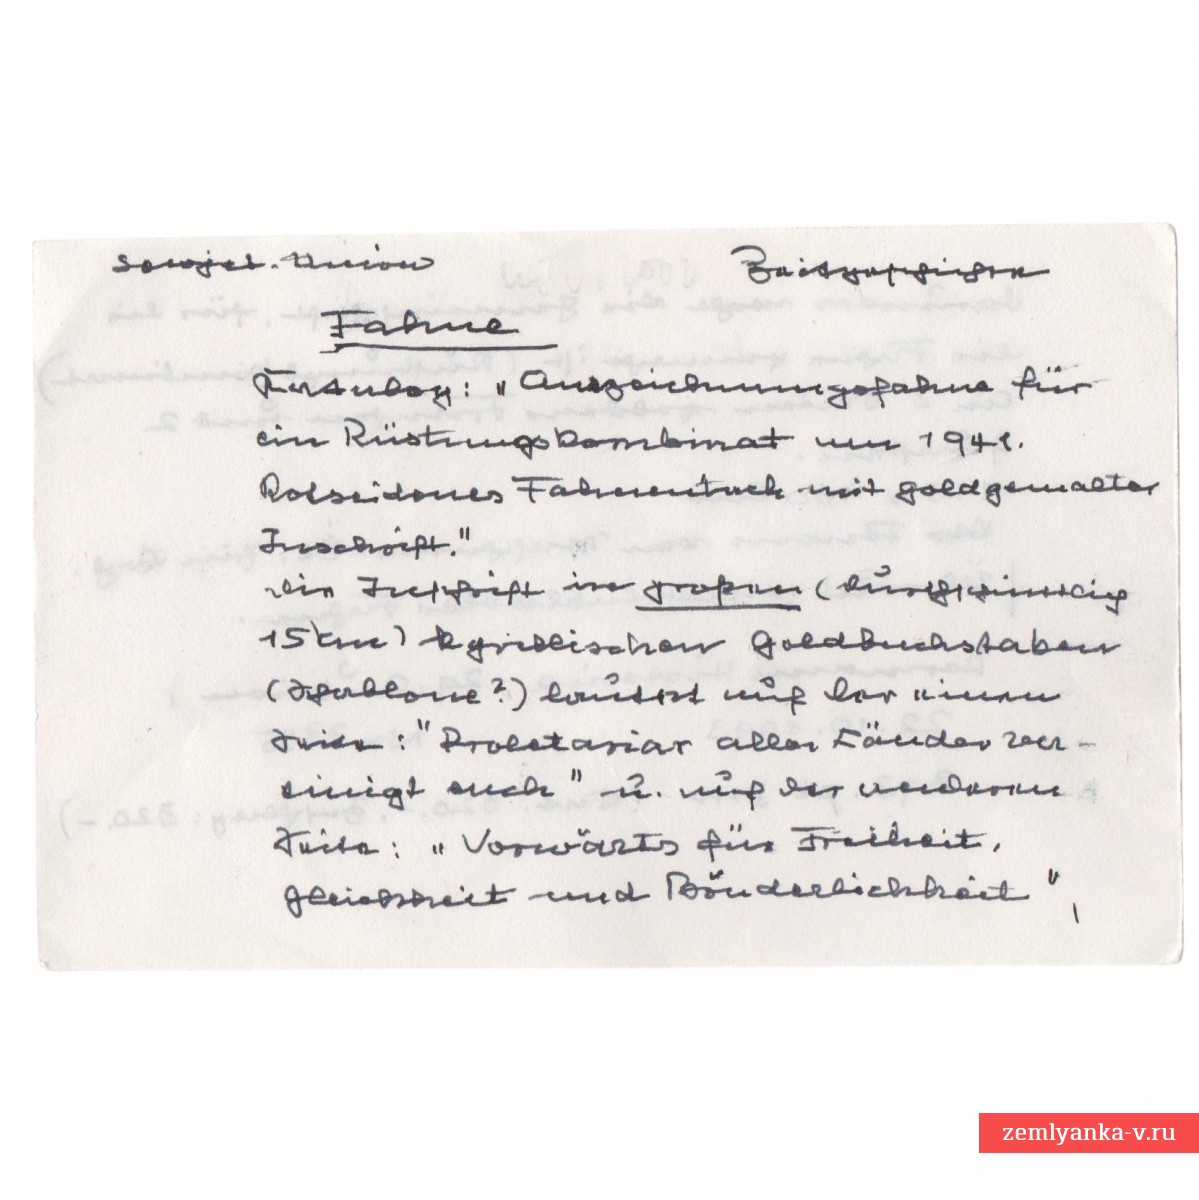 Sowjet-Union Zeitgeschichte
Fahne
"Auszeichnungsfahne für
ein Rüstungskombinat um 1941.
Rotseidenes Fahnentuch mit goldgemalter
Inschrift."
Die Inschrift in großen (durchschnittlich
15 cm) kyrillischen Goldbuchstaben
(Schablone?) lautet auf der einen
Seite: "Proletarier aller Länder ver-
einigt euch" u. auf der anderen
Seite: "Vorwärts für Freiheit,
Gleichheit und Brüderlichkeit",
zemlyanka-v.ru